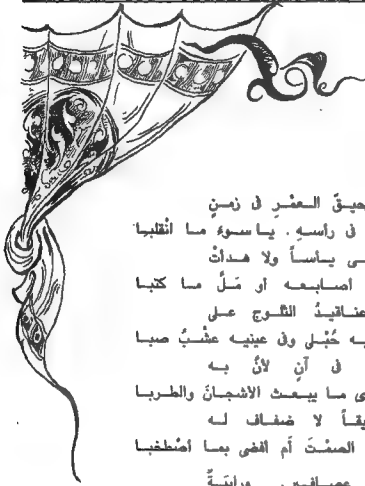 حيق العمر فى زمن
فى رأسه . يا سوء ما انقلبا
ـى يأساً ولا هدأت
اصابعه أو مل ما كتبا
عناقيد الثلوج على
ـه حبلى وفى عينيه عشب صبا
فى آن لأن به
ـى ما يبعث الأشجان والطربا
ـيقاً لا ضفاف له
الصمت أم افضى بما اصطخبا
عصافير . ورابية